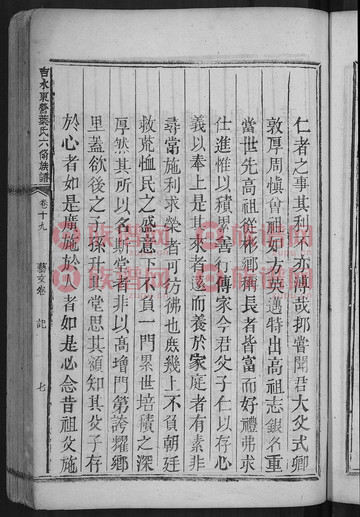 仁者之事其利不亦溥哉抑嘗聞君大父式卿
敦厚周慎曾祖如方英邁特出高祖志銀名重
當世先高祖從彬鄉稱長者皆富而好禮弗求
仕進惟以積累善行傳家今君父子仁以存心
義以奉上是其來者遠而養於家庭者有素非
尋常施利求榮者可彷彿也庶幾上不負朝廷
救荒恤民之盛意下不負一門累世培積之深
厚然其所以名斯堂者非以高增門第誇耀鄉
里蓋欲後之子孫升其堂思其額知其父子存
於心者如是廣施於人者如是必念昔祖父施
吉水東營葉氏六脩族譜
卷十九
藝文卷
記
七